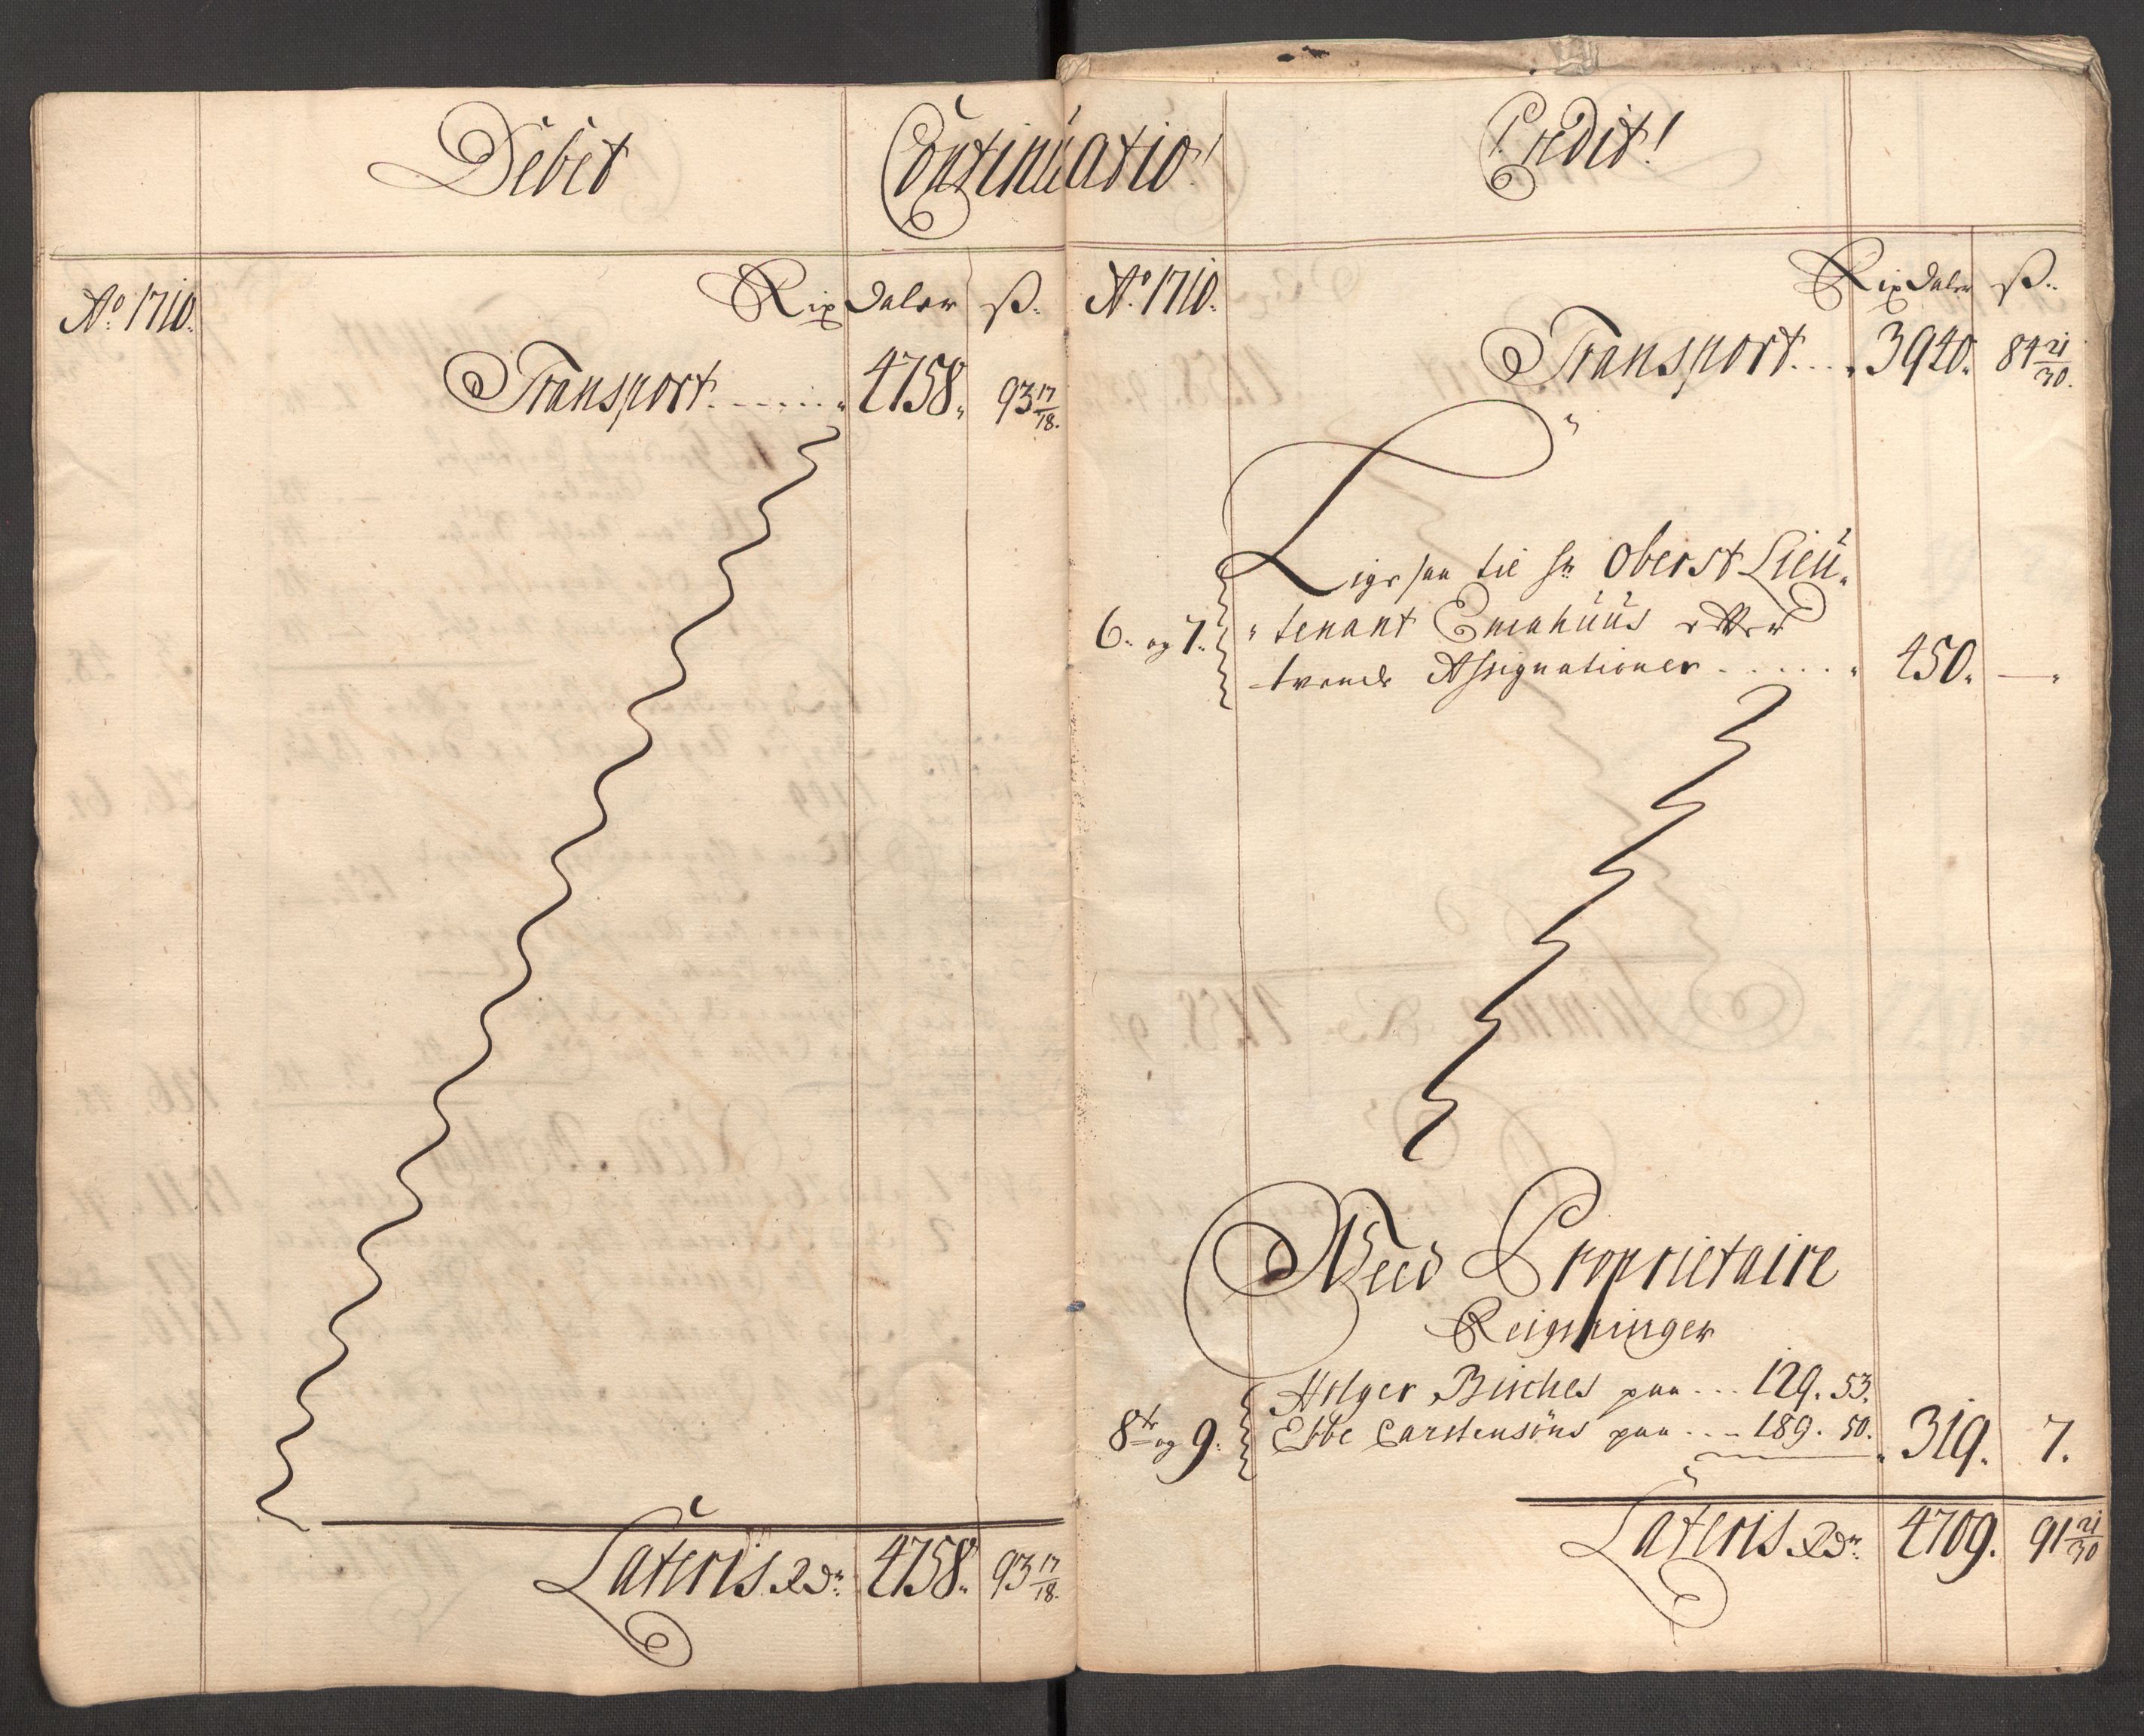 Debet
Continuatio
Ao 1710.
Rixdaler ß.
Transport ...... 4758. 93 17/18.
Lateris Rdr. 4758. 93 17/18.
Credit!
Ao 1710.
Rixdaler ß..
Transport.... 3940. 84 21/30.
Ligesaa til hr Oberst Lieu-
6. og 7. tenant Emahuus efter
tvende Assignationer ...... 450. —
Med Proprietaire
Reigninger
Holger Bisches paa ... 129. 53.
8de og 9. Ebbe Carstensöns paa ... 189. 50. 319. 7.
Lateris Rdr. 4709. 91 21/30